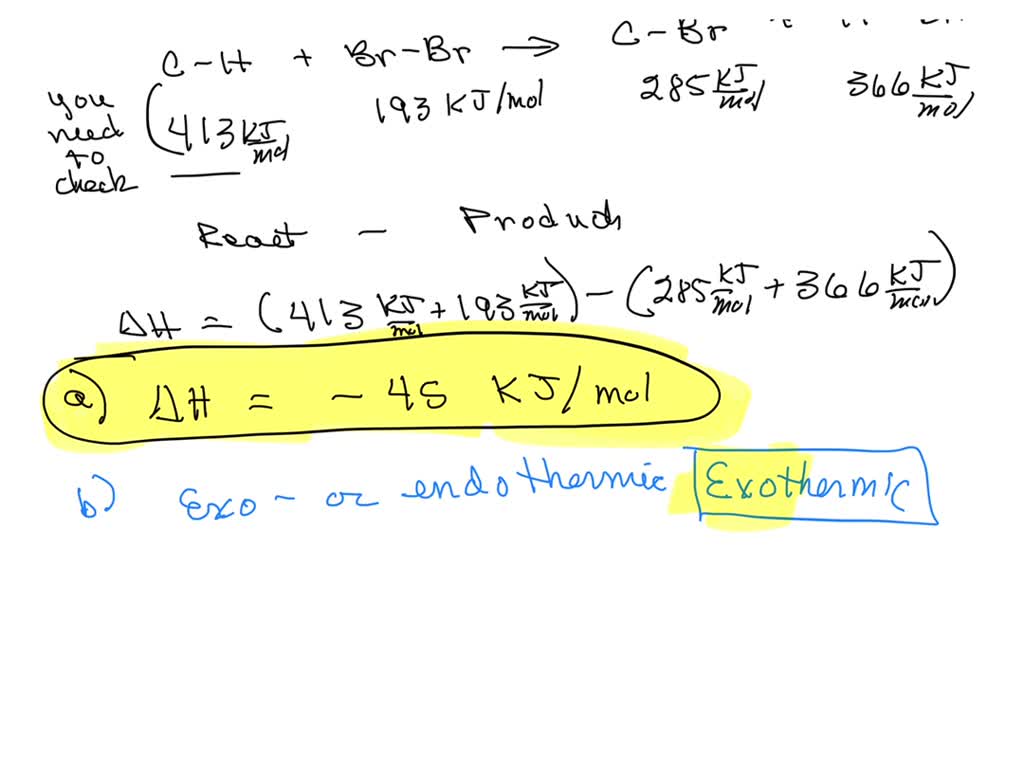 C-H + Br-Br → C-Br
you need to check (413 KJ/mol 193 KJ/mol 285 KJ/mol 366 KJ/mol
React - Products
ΔH = (413 KJ/mol + 193 KJ/mol) - (285 KJ/mol + 366 KJ/mol)
a) ΔH = - 45 KJ/mol
b) Exo- or endothermic Exothermic